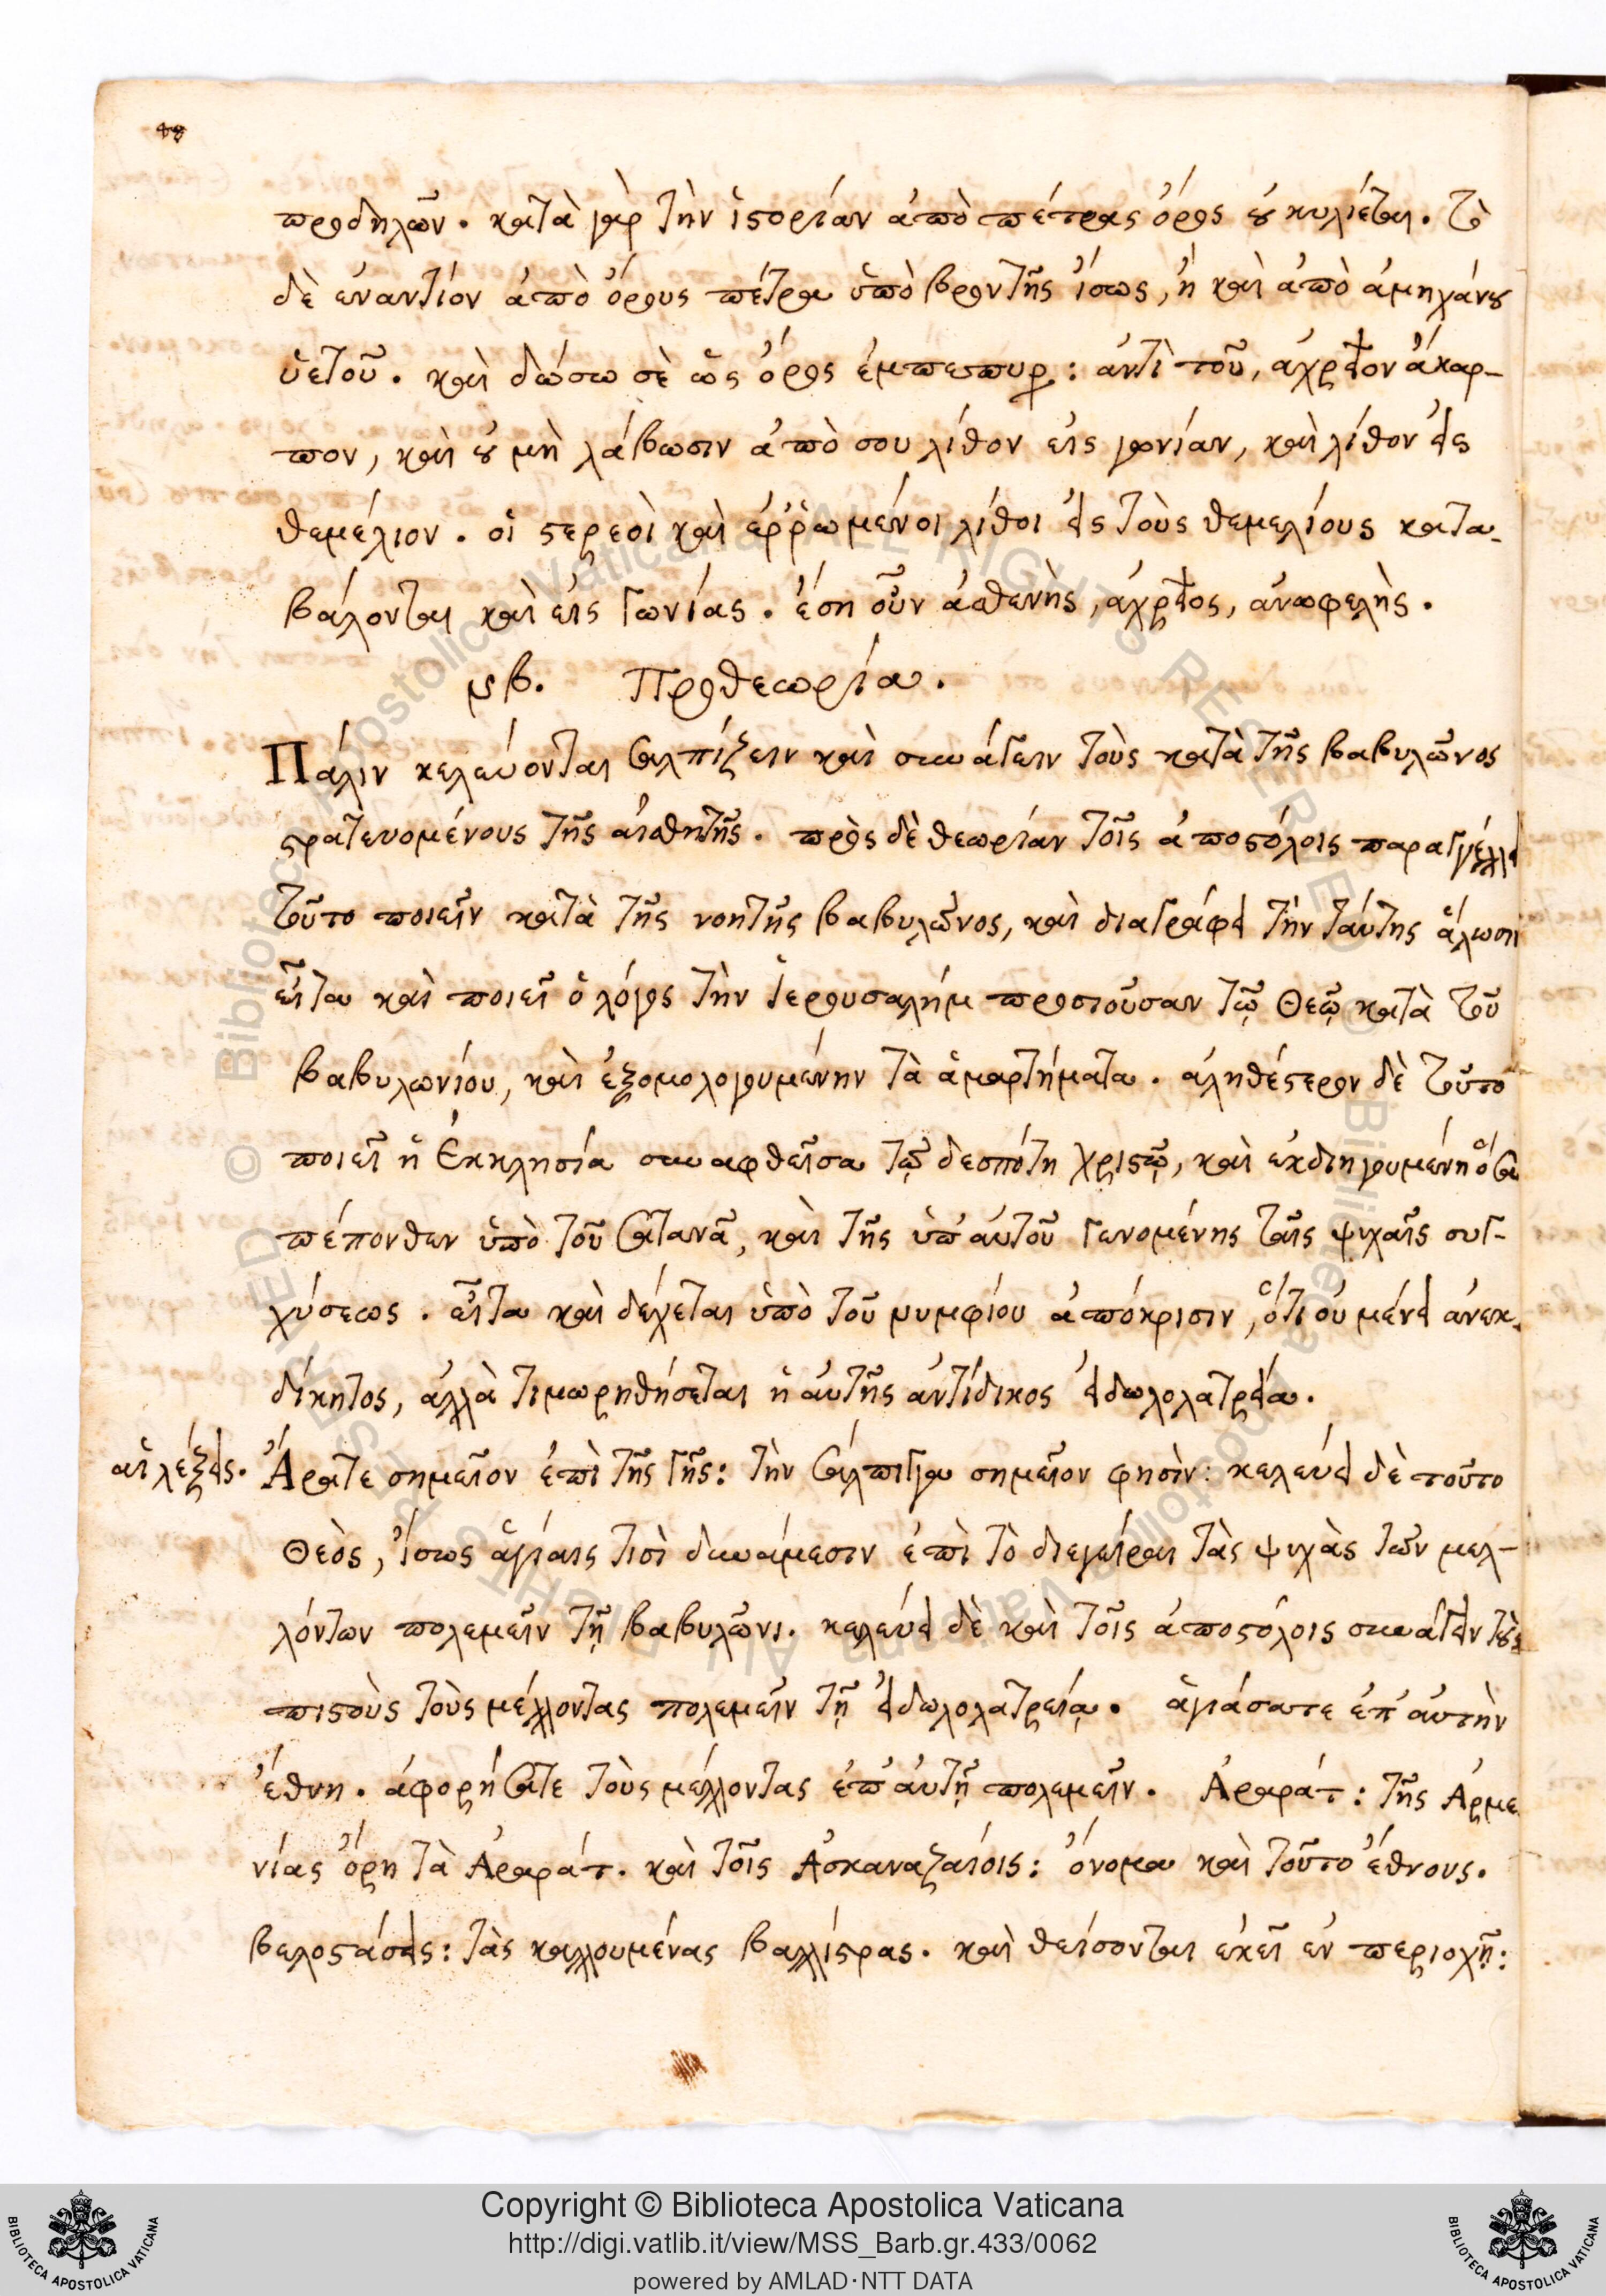 προδηλῶν. κατὰ γὰρ τὴν ἱστορίαν ἀπὸ πέτρας ὄρος οὐ κυλίεται. τὸ
δὲ ἐναντίον ἀπὸ ὄρους πέτρα ὑπὸ βροντῆς ἴσως, ἢ καὶ ἀπὸ ἀμηχάνου
ὑετοῦ. καὶ δώσω σὲ ὡς ὄρος ἐμπεπυρ: ἀντὶ τοῦ, ἀχρεῖον ἄκαρ-
πον, καὶ οὐ μὴ λάβωσιν ἀπό σου λίθον εἰς γωνίαν, καὶ λίθον εἰς
θεμέλιον. οἱ στερεοὶ καὶ ἐῤῥωμένοι λίθοι εἰς τοὺς θεμελίους κατα-
βάλονται καὶ εἰς γωνίας. ἔση οὖν ἀσθενὴς, ἀχρεῖος, ἀνωφελὴς.
μβ. Προθεωρία.
Πάλιν κελεύονται σαλπίζειν καὶ συνάγειν τοὺς κατὰ τῆς βαβυλῶνος
στρατευομένους τῆς αἰσθητῆς. πρὸς δὲ θεωρίαν τοῖς ἀποστόλοις παραγγέλλει
τοῦτο ποιεῖν κατὰ τῆς νοητῆς βαβυλῶνος, καὶ διαγράφει τὴν ταύτης ἅλωσιν
εἶτα καὶ ποιεῖ ὁ λόγος τὴν ἱερουσαλὴμ προσιοῦσαν τῷ Θεῷ κατὰ τοῦ
βαβυλωνίου, καὶ ἐξομολογουμένην τὰ ἁμαρτήματα. ἀληθέστερον δὲ τοῦτο
ποιεῖ ἡ Ἐκκλησία συναφθεῖσα τῷ δεσπότῃ χριστῷ, καὶ ἐκδιηγουμένη ὅσα
πέπονθεν ὑπὸ τοῦ σατανᾶ, καὶ τῆς ὑπ' αὐτοῦ γενομένης ταῖς ψυχαῖς συγ-
χύσεως. εἶτα καὶ δέχεται ὑπὸ τοῦ νυμφίου ἀπόκρισιν, ὅτι οὐ μένει ἀνεκ-
δίκητος, ἀλλὰ τιμωρηθήσεται ἡ αὐτῆς ἀντίδικος εἰδωλολατρεία.
αἱ λέξεις. Ἄρατε σημεῖον ἐπὶ τῆς γῆς: τὴν σάλπιγγα σημεῖον φησὶν: κελεύει δὲ τοῦτο
Θεὸς, ἴσως ἁγίαις τισὶ δυνάμεσιν ἐπὶ τὸ διεγεῖραι τὰς ψυχὰς τῶν μελ-
λόντων πολεμεῖν τῇ βαβυλῶνι. κελεύει δὲ καὶ τοῖς ἀποστόλοις συνάγειν τοὺς
πιστοὺς τοὺς μέλλοντας πολεμεῖν τῇ εἰδωλολατρείᾳ. ἁγιάσατε ἐπ' αὐτὴν
ἔθνη. ἀφορήσατε τοὺς μέλλοντας ἐπ' αὐτῇ πολεμεῖν. Ἀραράτ: τῆς Ἀρμε
νίας ὄρη τὰ Ἀραράτ. καὶ τοῖς Ἀσκαναζαίοις: ὄνομα καὶ τοῦτο ἔθνους.
βελοστάσεις: τὰς καλλουμένας βαλλίστρας. καὶ θείσονται ἐκεῖ ἐν περιοχῇ:
Copyright © Biblioteca Apostolica Vaticana
http://digi.vatlib.it/view/MSS_Barb.gr.433/0062
powered by AMLAD·NTT DATA